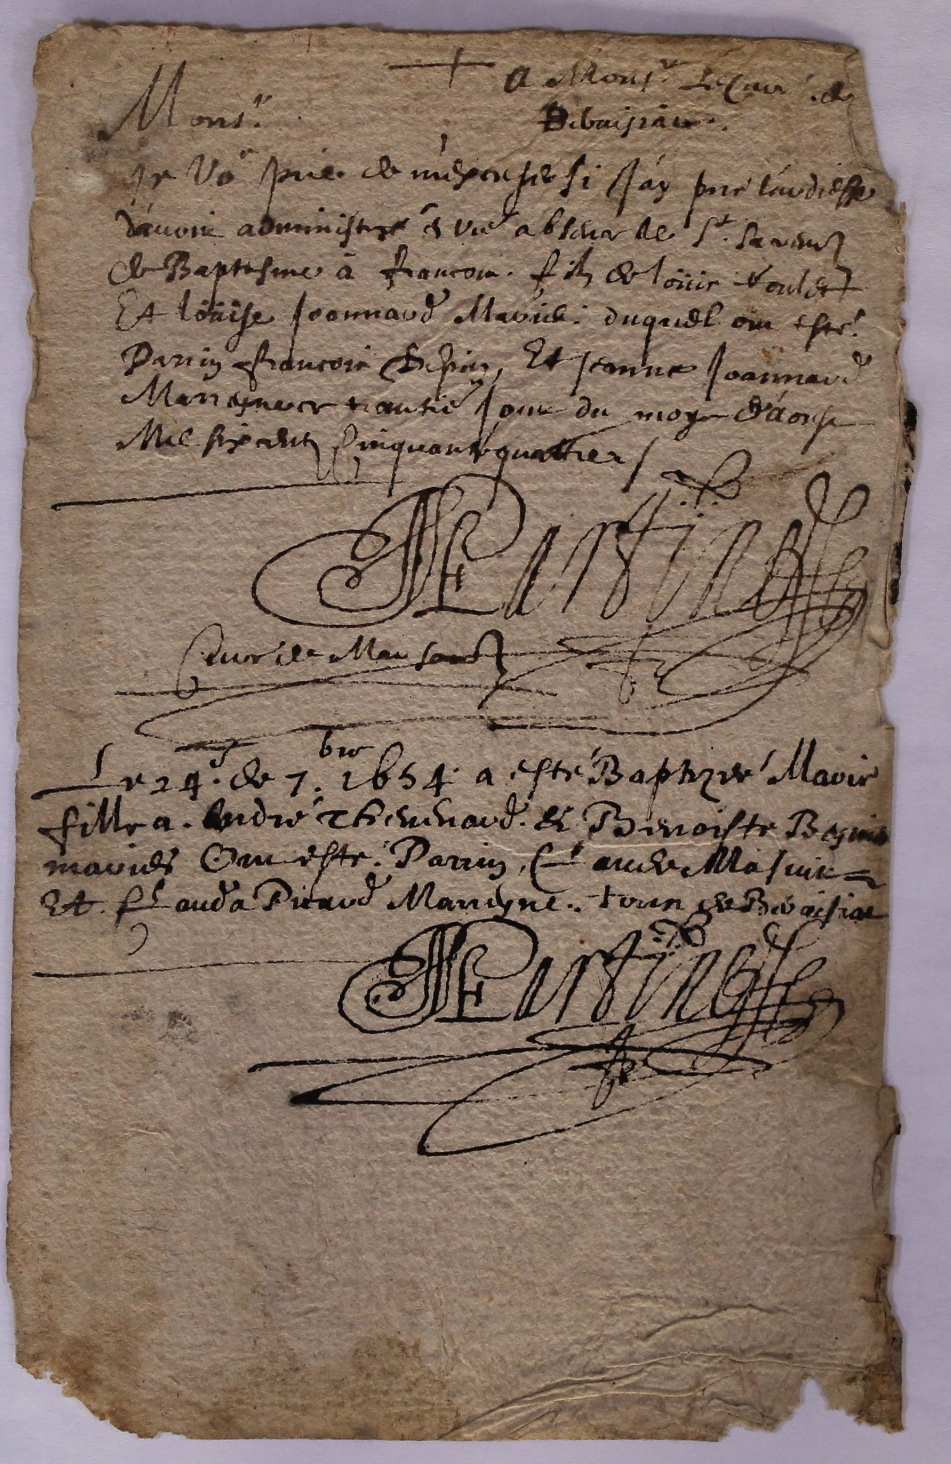 A Mons.r Le Curé de
Mons.r
Je vo.s prie de m'excuser si j'ay pris l'ardiesse
d'avoir administré en vre absence le St. Sacrem.t
de Baptesme à françois fils de loüis
Et loüise Joannard Mariés. duquel ont esté
Parrin françois Et Jeanne Joannard
Marreyne ce trantie Jour du moys d'aoust
Mil six cent Cinquante quattre /
Curé de Mansanct
Le 24.e de 7.bre 1654. a esté Baptizée Marie
fille a. André Thevenard. et Benoiste
mariés Ont esté. Parrin, Claude
Et. Clauda Picard Marreyne. tous de